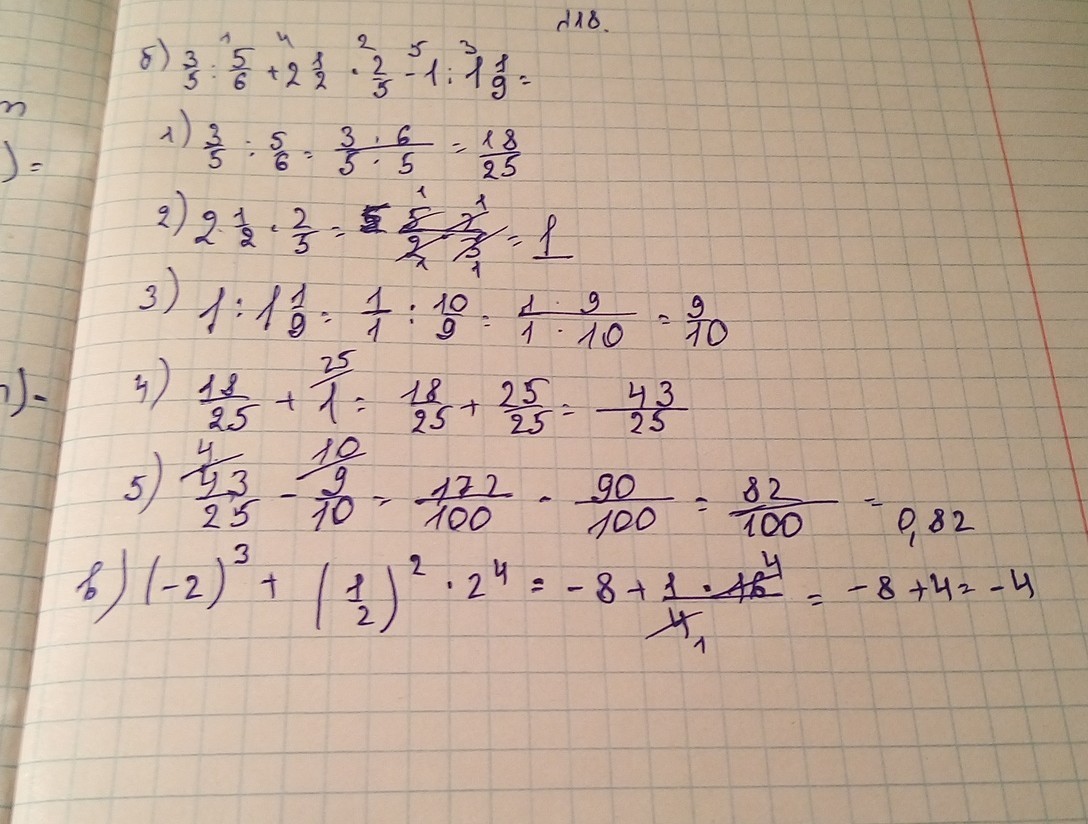 218.
б) 3/5 : 5/6 + 2 1/2 · 2/5 - 1 : 1 1/9 =
1) 3/5 : 5/6 = 3 · 6 / 5 · 5 = 18/25
) =
2) 2 1/2 · 2/5 = 5 · 2 / 2 · 5 = 1
3) 1 : 1 1/9 = 1/1 : 10/9 = 1 · 9 / 1 · 10 = 9/10
4) 18/25 + 25/1 = 18/25 + 25/25 = 43/25
5) 4/ 43/25 - 10/ 9/10 = 172/100 - 90/100 = 82/100 = 0,82
в) (-2)³ + (1/2)² · 2⁴ = -8 + 1 · 16⁴ / 4₁ = -8 + 4 = -4